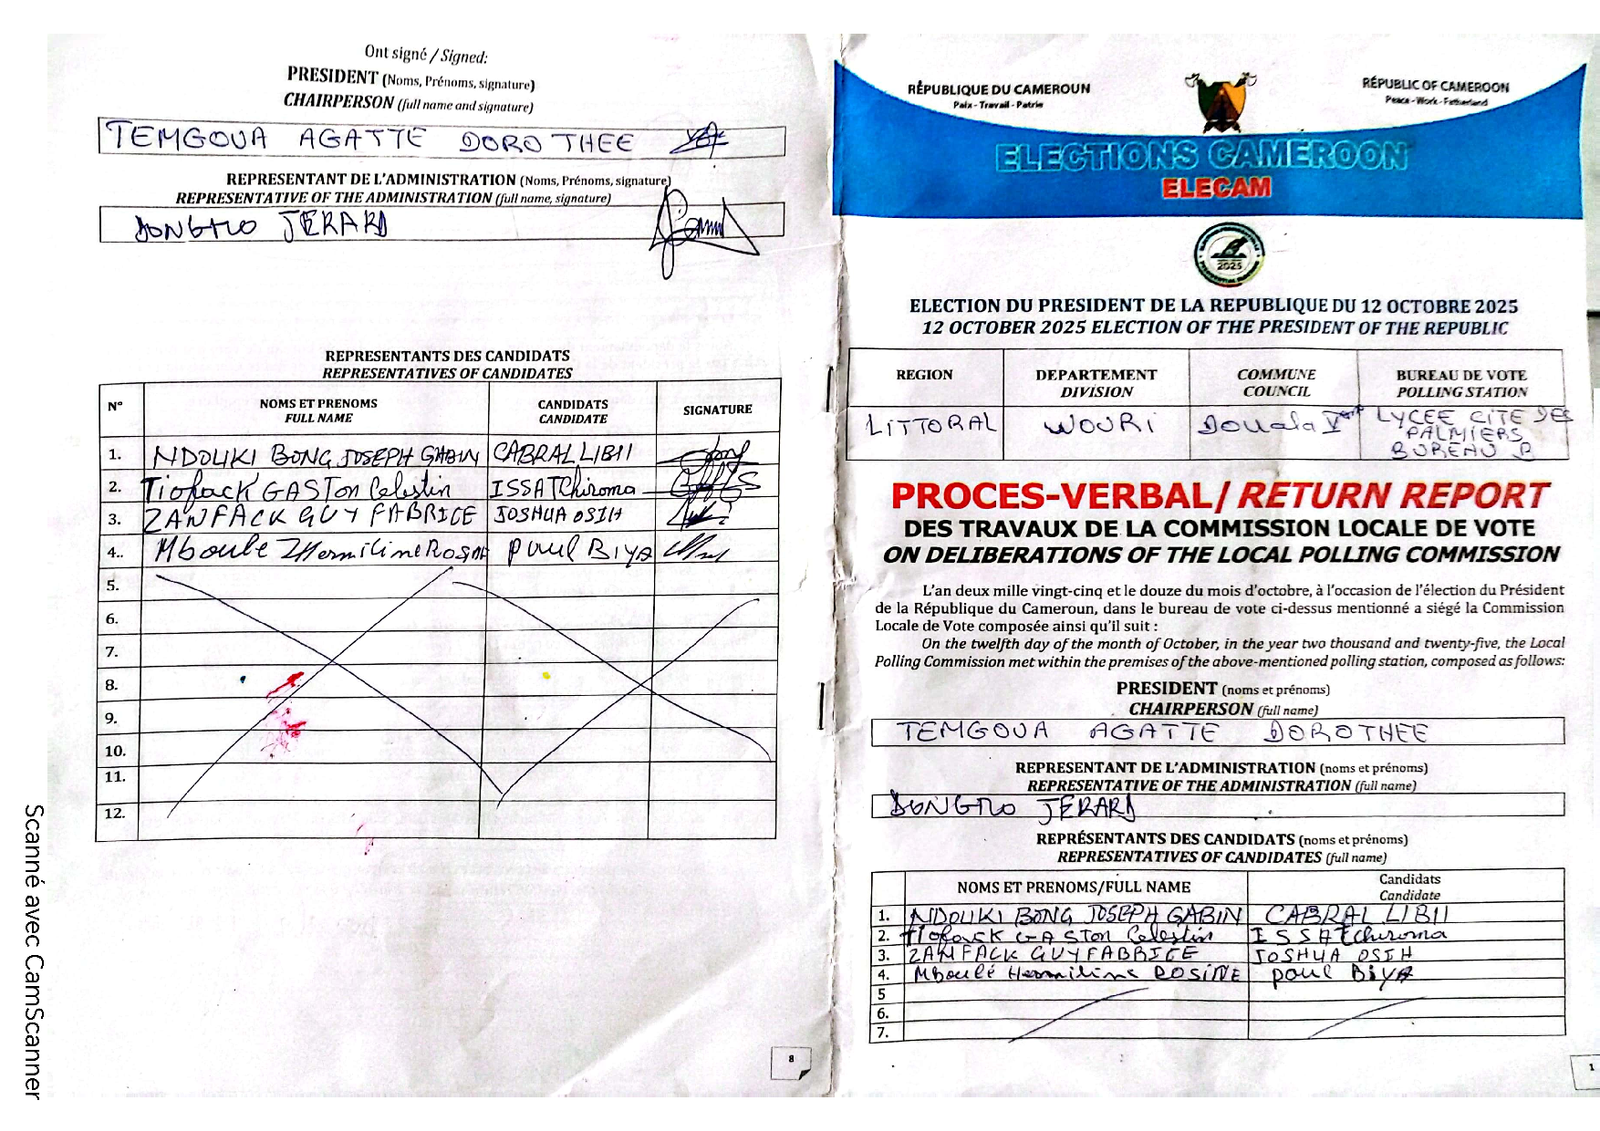 Ont signé / Signed:
PRESIDENT (Noms, Prénoms, signature)
CHAIRPERSON (full name and signature)
TEMGOUA AGATTE DOROTHEE
REPRESENTANT DE L'ADMINISTRATION (Noms, Prénoms, signature)
REPRESENTATIVE OF THE ADMINISTRATION (full name, signature)
DONGMO JERARD
REPRESENTANTS DES CANDIDATS
REPRESENTATIVES OF CANDIDATES
N° NOMS ET PRENOMS FULL NAME CANDIDATS CANDIDATE SIGNATURE
1. NDOUKI BONG JOSEPH GABIN CABRAL LIBII
2. Tiofack GASTon Celestin ISSA TChiroma
3. ZANFACK GUY FABRICE JOSHUA OSIH
4.. Mboule Hermiline ROSINE paul BIYA
5.
6.
7.
8.
9.
10.
11.
12.
8
Scanné avec CamScanner
RÉPUBLIQUE DU CAMEROUN
Paix - Travail - Patrie
RÉPUBLIC OF CAMEROON
Peace - Work - Fatherland
ELECTIONS CAMEROON
ELECAM
2025
ELECTION DU PRESIDENT DE LA REPUBLIQUE DU 12 OCTOBRE 2025
12 OCTOBER 2025 ELECTION OF THE PRESIDENT OF THE REPUBLIC
REGION DEPARTEMENT DIVISION COMMUNE COUNCIL BUREAU DE VOTE POLLING STATION
LITTORAL WOURI Douala V LYCEE CITE DES PALMIERS BUREAU B
PROCES-VERBAL/ RETURN REPORT
DES TRAVAUX DE LA COMMISSION LOCALE DE VOTE
ON DELIBERATIONS OF THE LOCAL POLLING COMMISSION
L'an deux mille vingt-cinq et le douze du mois d'octobre, à l'occasion de l'élection du Président
de la République du Cameroun, dans le bureau de vote ci-dessus mentionné a siégé la Commission
Locale de Vote composée ainsi qu'il suit :
On the twelfth day of the month of October, in the year two thousand and twenty-five, the Local
Polling Commission met within the premises of the above-mentioned polling station, composed as follows:
PRESIDENT (noms et prénoms)
CHAIRPERSON (full name)
TEMGOUA AGATTE DOROTHEE
REPRESENTANT DE L'ADMINISTRATION (noms et prénoms)
REPRESENTATIVE OF THE ADMINISTRATION (full name)
DONGMO JERARD
REPRÉSENTANTS DES CANDIDATS (noms et prénoms)
REPRESENTATIVES OF CANDIDATES (full name)
NOMS ET PRENOMS/FULL NAME Candidats Candidate
1. NDOUKI BONG JOSEPH GABIN CABRAL LIBII
2. Tiofack GASTon Celestin ISSA Tchiroma
3. ZANFACK GUY FABRICE JOSHUA OSIH
4. Mboulé Hermiline ROSINE paul BIYA
5
6.
7.
1